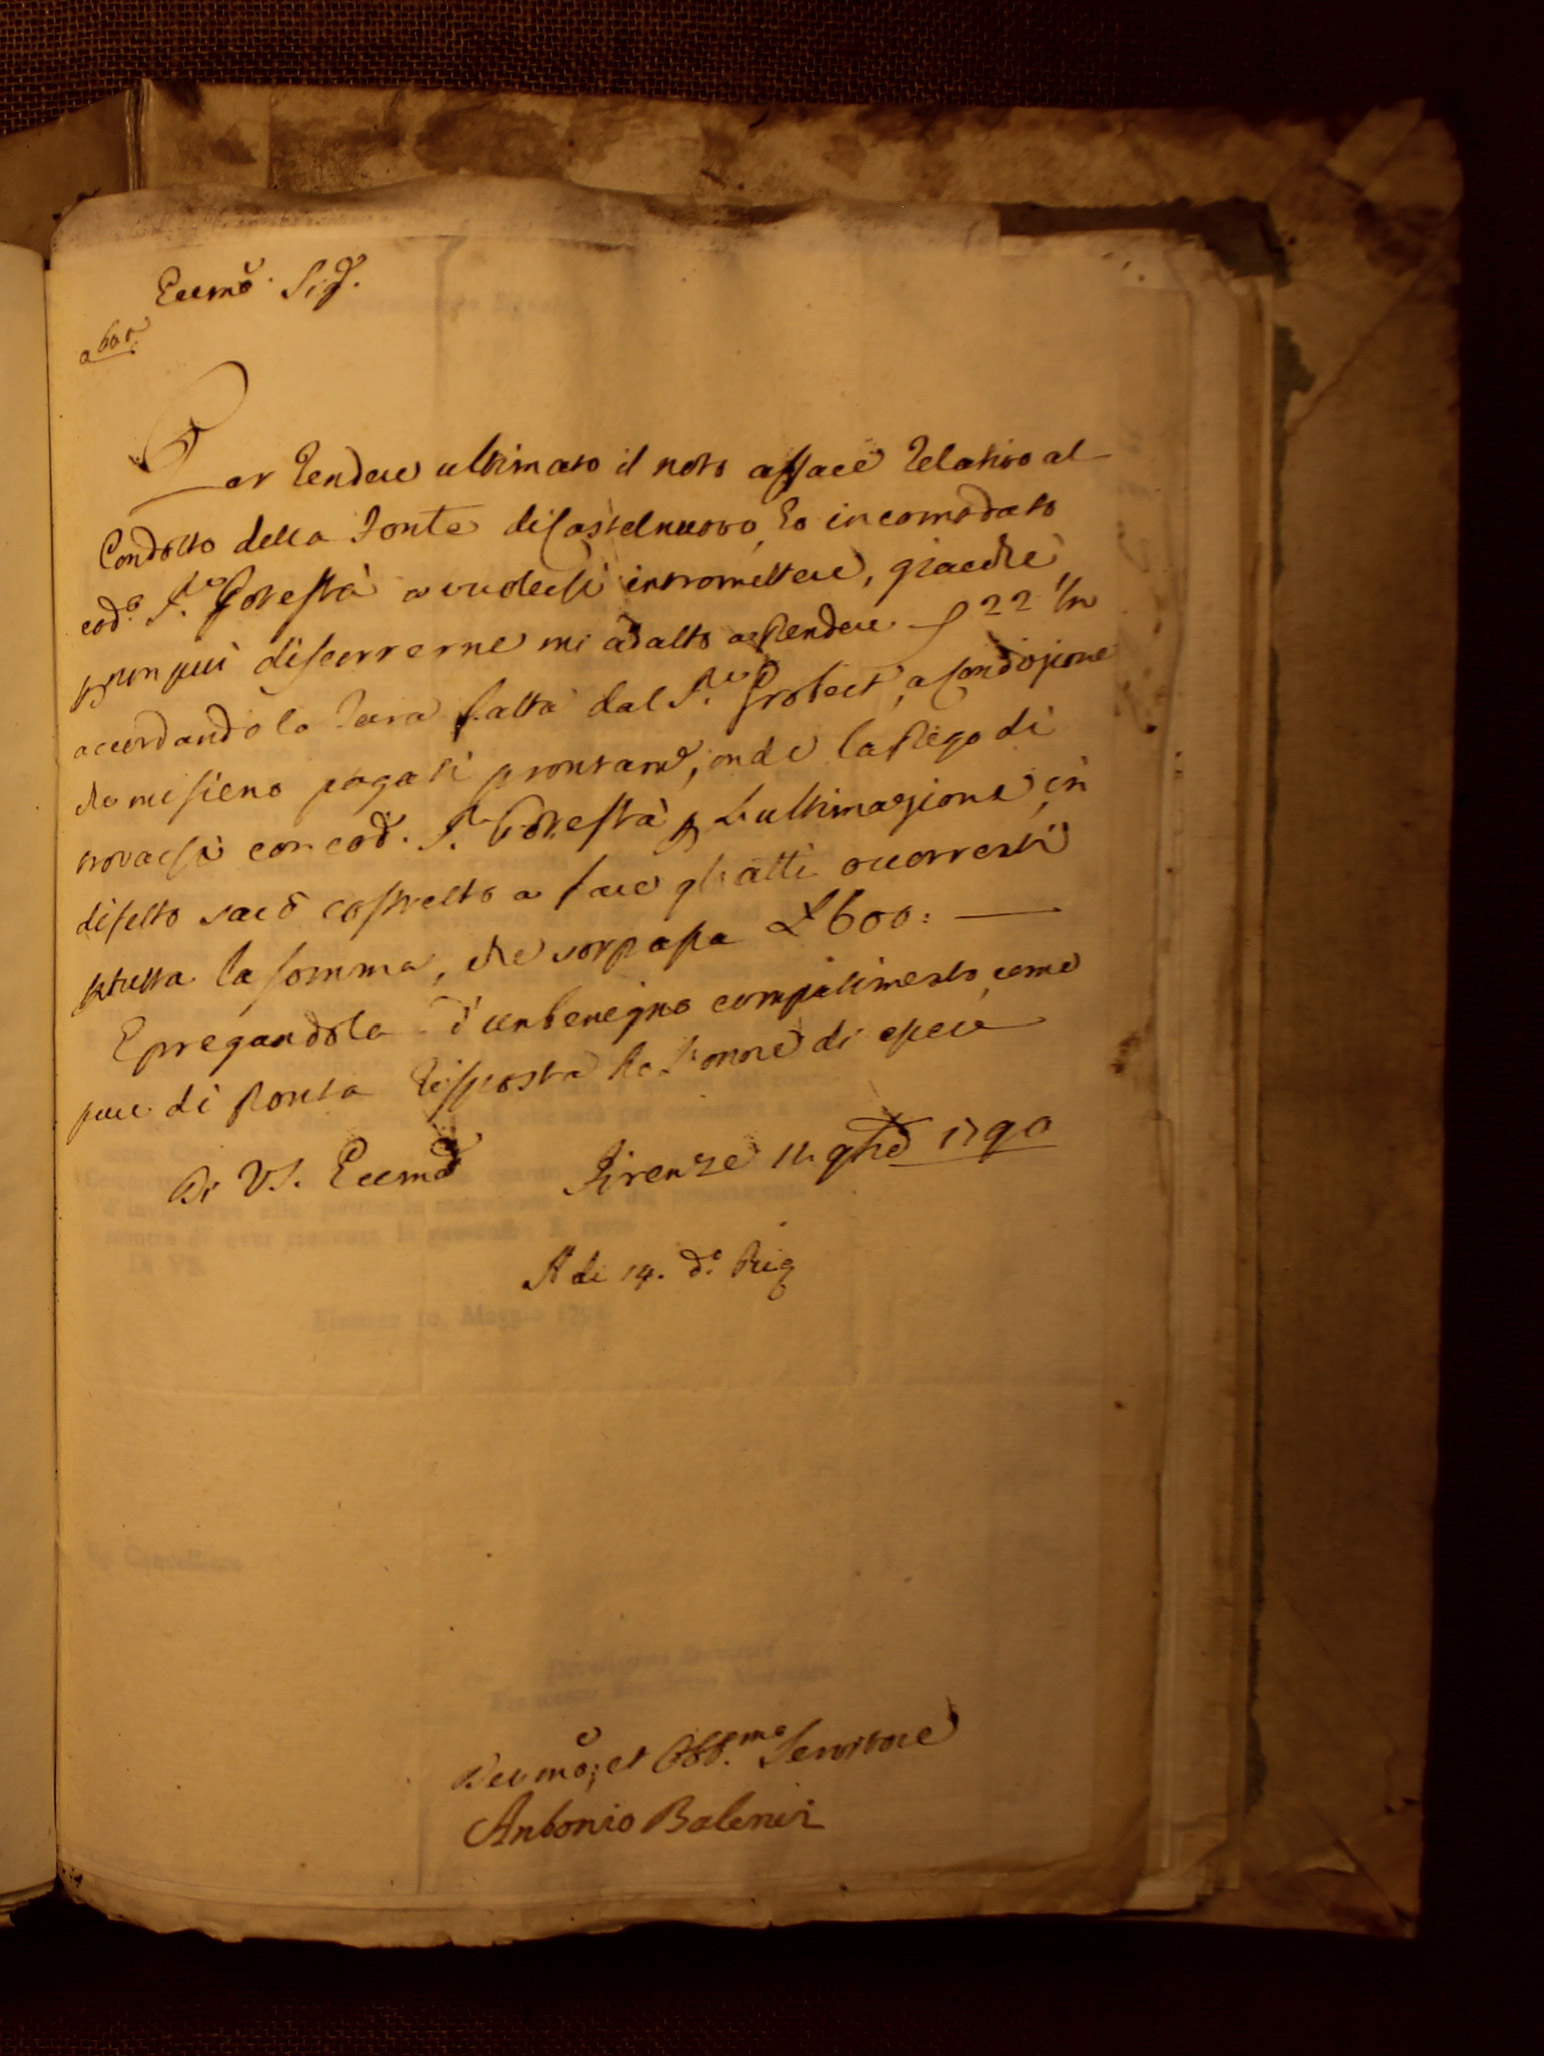 Eccmo. Sigr.
a 601.
Per rendere ultimato il noto affare relativo al
Condotto della Fonte di Castelnuovo, ho incomodato
codo. Sr. Potestà a vedersi intromettere, giacche
p non più discorrerne mi adatto a prendere 22
accordando la tara fatta dal Sr. a condizione
che mi sieno pagati prontamte, onde la prego di
trovarsi con cod. Sr. Potestà p l'ultimazione, in
difetto sarò costretto a fare gli atti occorrenti
p tutta la somma, che sorpassa £ 600: —
E pregandola d'un benigno compatimento, come
pure di pronta risposta ho l'onore di essere
Di VS. Eccma Firenze 11. 9bre 1790
A di 14. do. Risp
Devmo, et Obbmo Servitore
Antonio